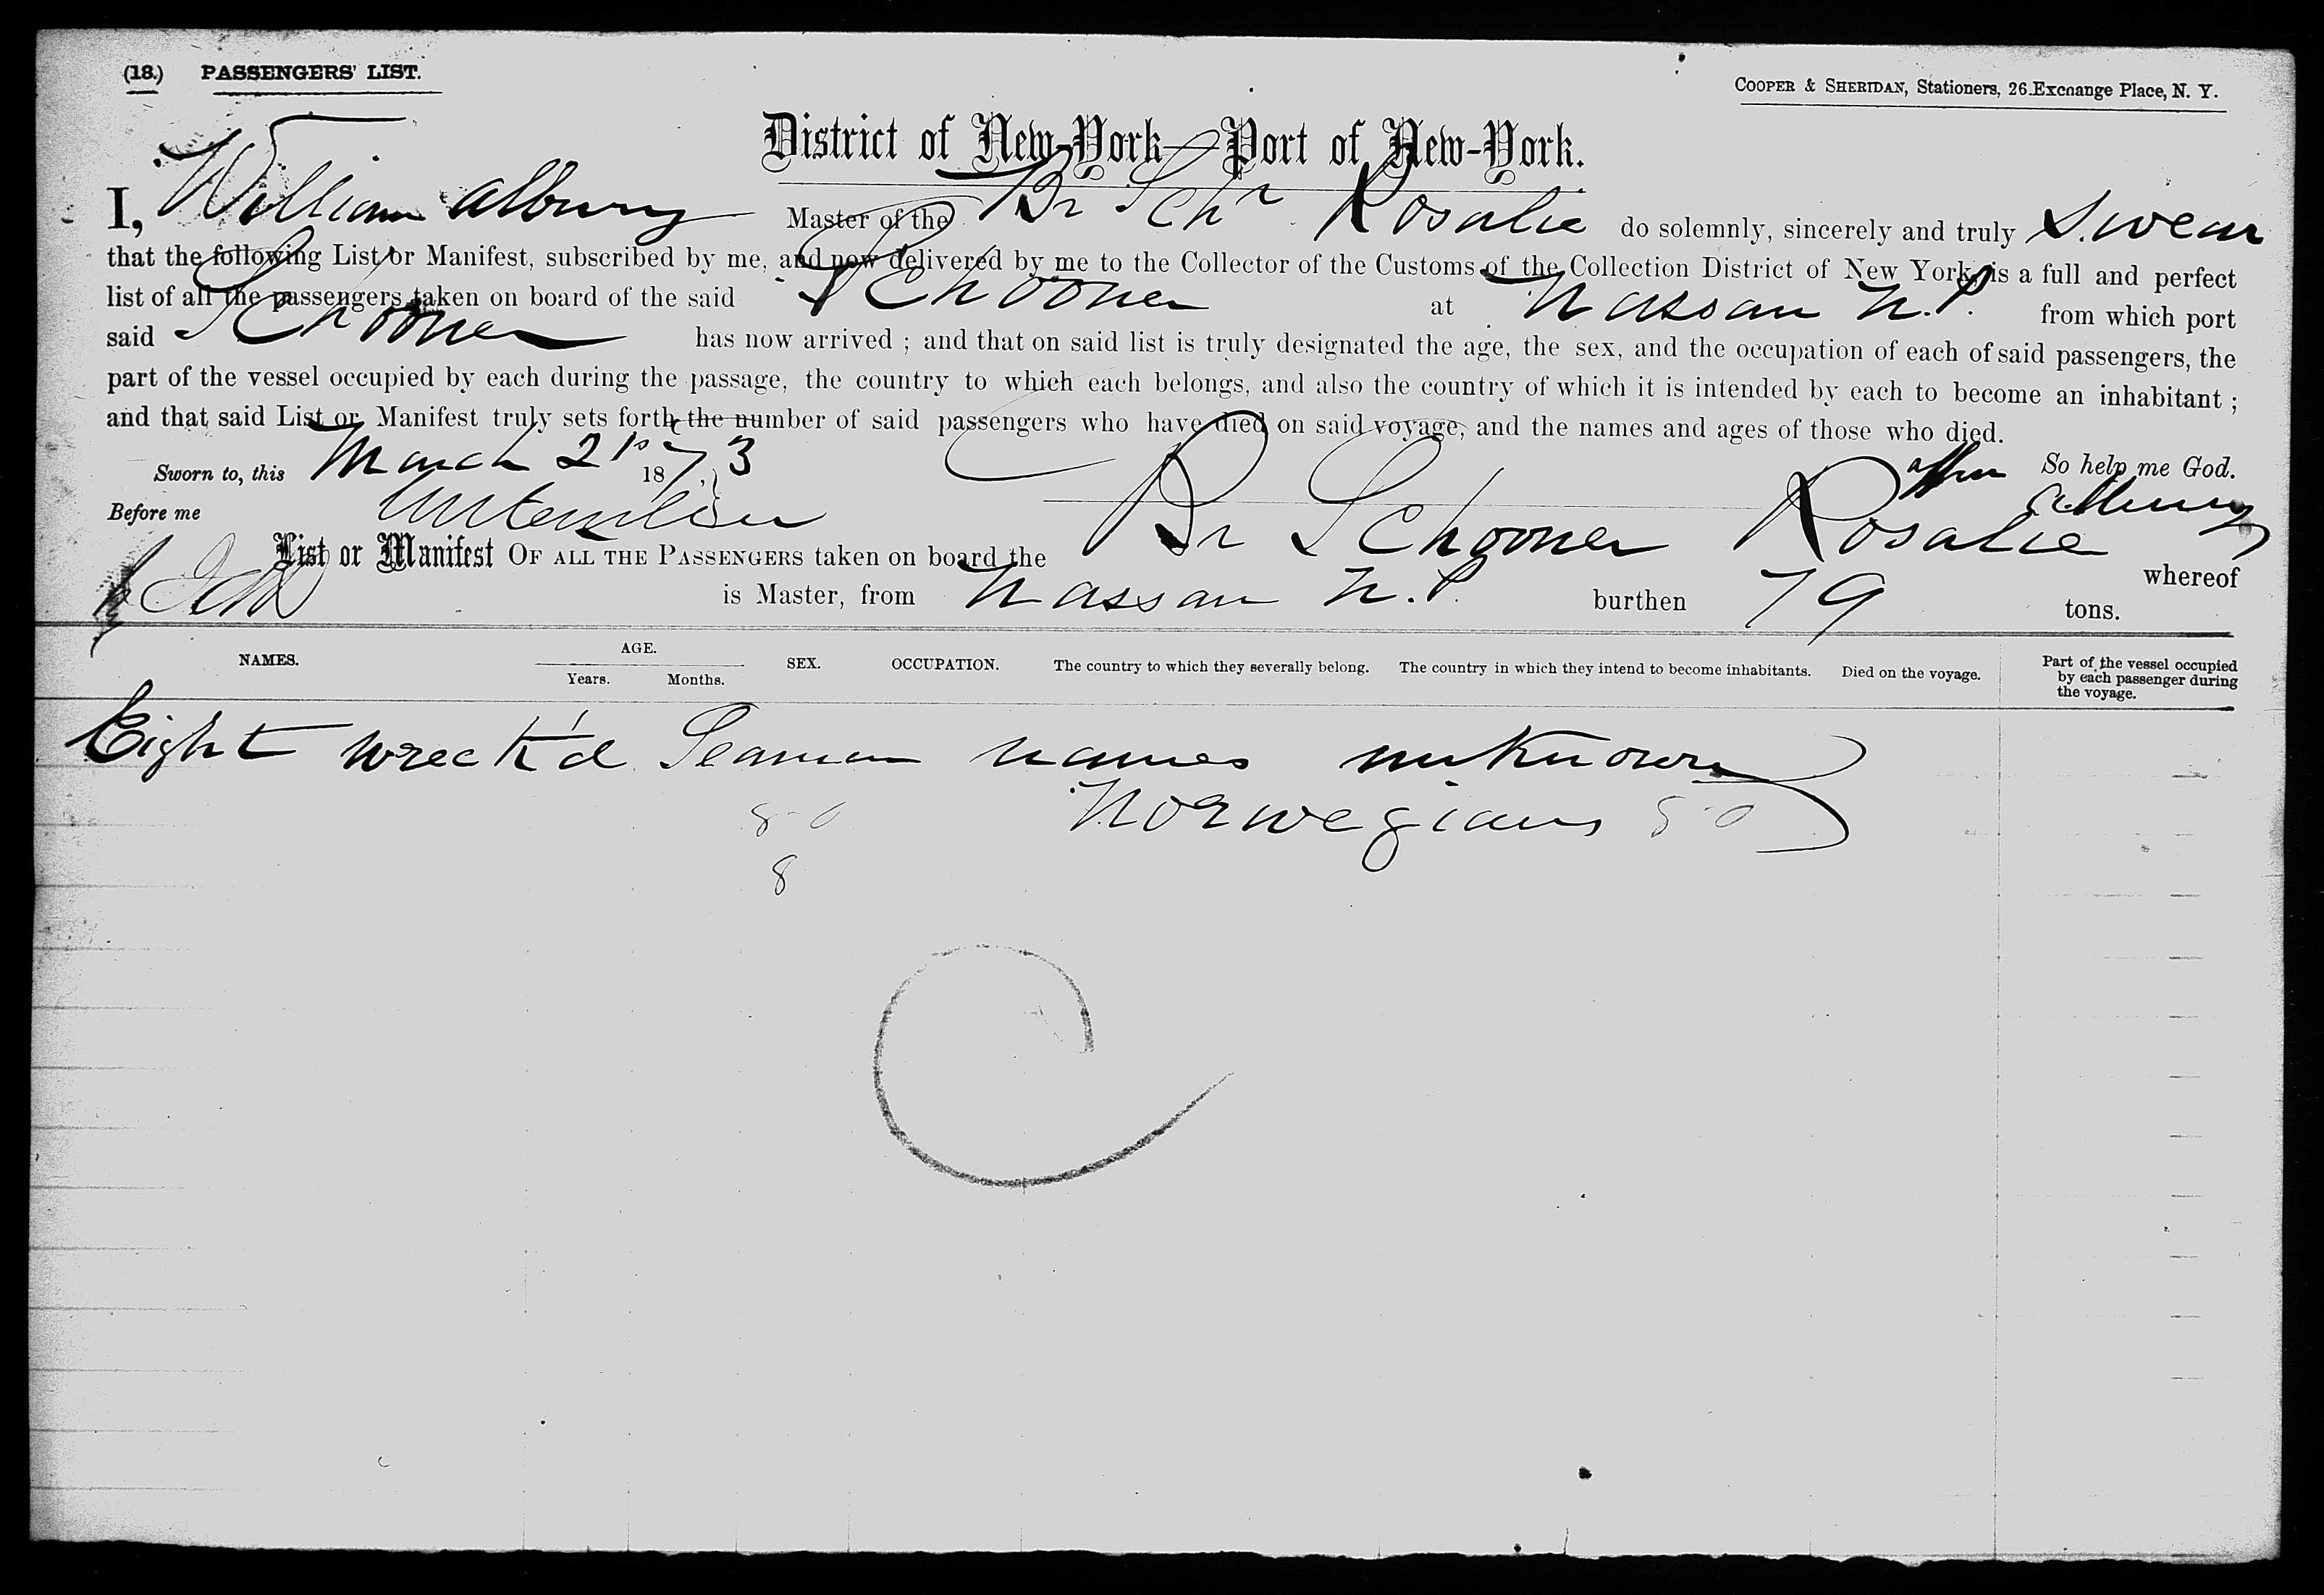 (18.) PASSENGERS' LIST.
COOPER & SHERIDAN, Stationers, 26 Exchange Place, N. Y.
District of New-York—Port of New-York.
I, William Albury Master of the Br Schr Rosalie do solemnly, sincerely and truly Swear
that the following List or Manifest, subscribed by me, and now delivered by me to the Collector of the Customs of the Collection District of New York, is a full and perfect
list of all the passengers taken on board of the said Schooner at Nassau N.P. from which port
said Schooner has now arrived ; and that on said list is truly designated the age, the sex, and the occupation of each of said passengers, the
part of the vessel occupied by each during the passage, the country to which each belongs, and also the country of which it is intended by each to become an inhabitant ;
and that said List or Manifest truly sets forth the number of said passengers who have died on said voyage, and the names and ages of those who died.
Sworn to, this March 21 1873 So help me God.
Before me Albury
List or Manifest OF ALL THE PASSENGERS taken on board the Br Schooner Rosalie whereof
is Master, from Nassau N.P. burthen 79 tons.
NAMES. AGE. Years. Months. SEX. OCCUPATION. The country to which they severally belong. The country in which they intend to become inhabitants. Died on the voyage. Part of the vessel occupied by each passenger during the voyage.
Eight wreck'd Seamen names unknown
8-0 Norwegians
8